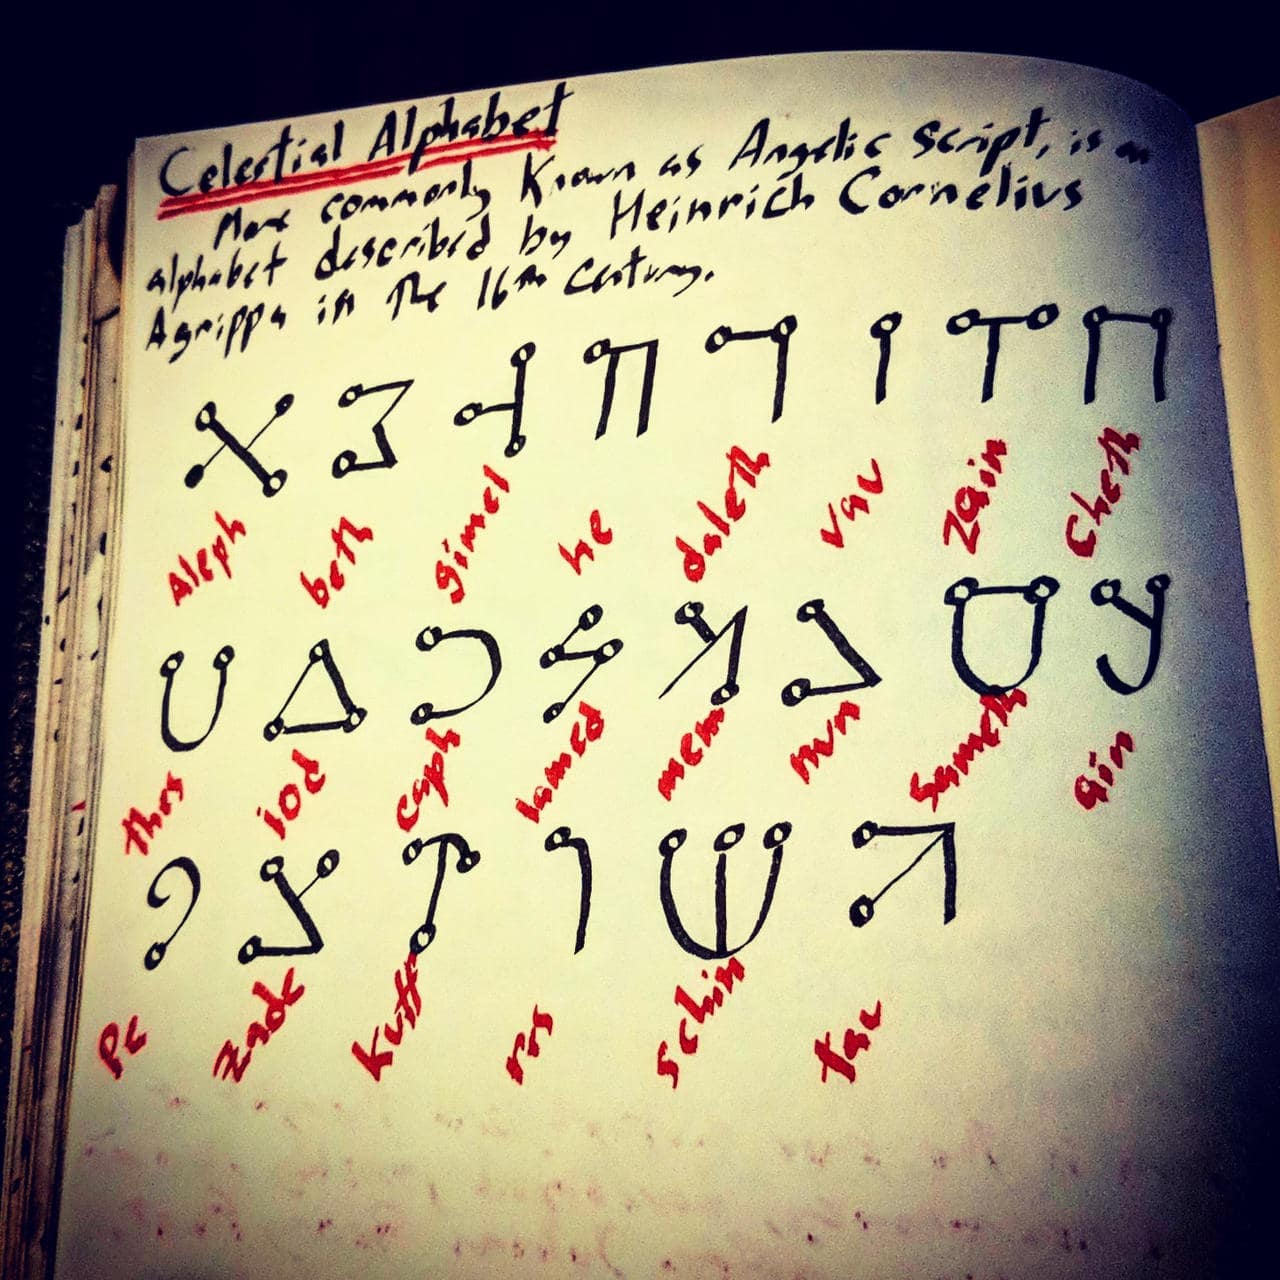 Celestial Alphabet
More commonly Known as Angelic Script, is an
alphabet described by Heinrich Cornelius
Agrippa in the 16th Century.
Aleph beth gimel he daleth vau zain cheth
thes iod caph lamed mem nun Sameth ain
Pe zade kuff res schin tau